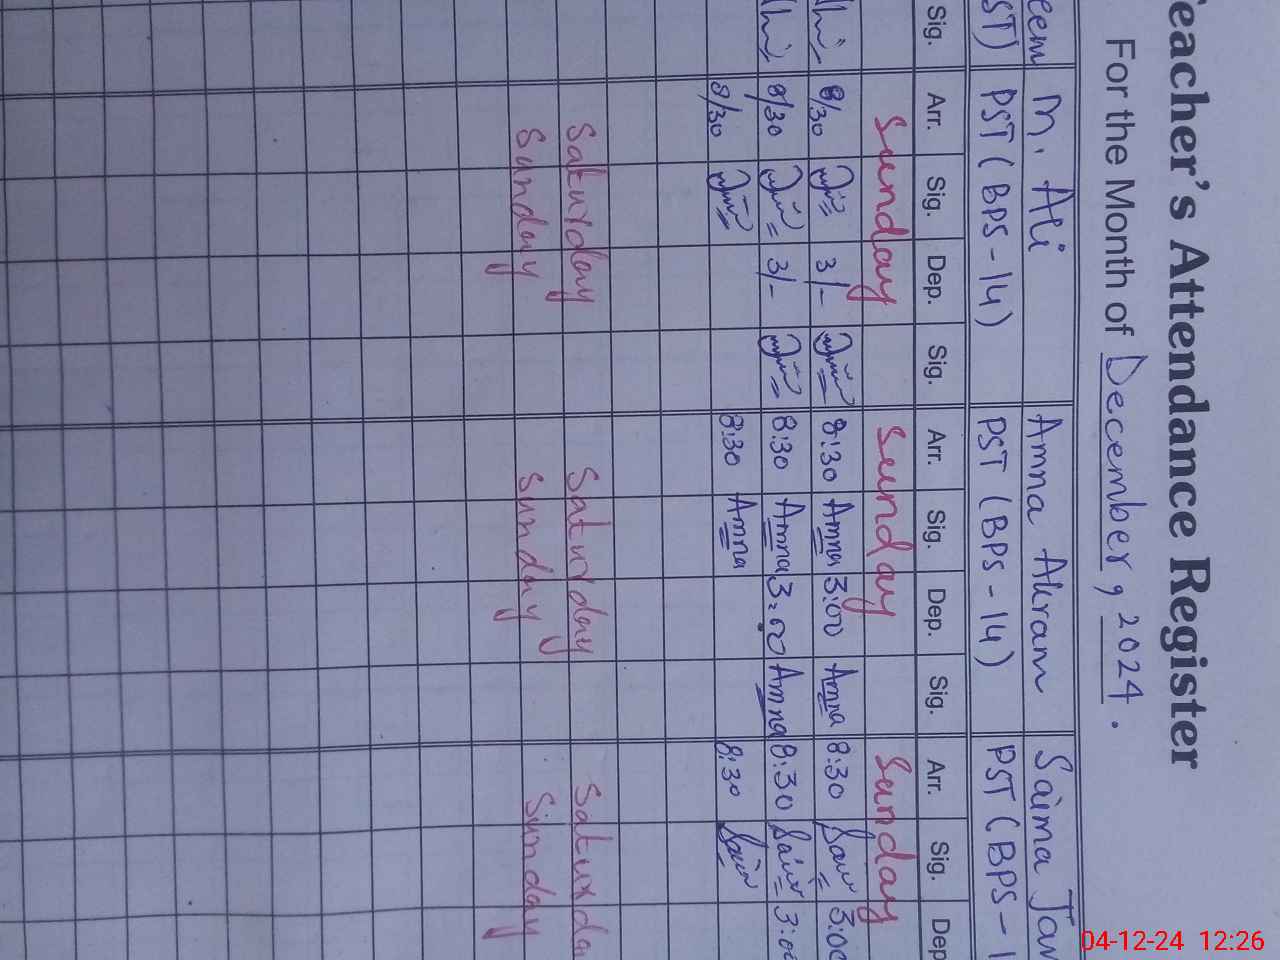 Teacher's Attendance Register
For the Month of December, 2024.
eem M. Ali Amna Akram Saima Jav
ST) PST (BPS-14) PST (BPS-14) PST (BPS-1
Sig. Arr. Sig. Dep. Sig. Arr. Sig. Dep. Sig. Arr. Sig. Dep
Sunday Sunday Sunday
8/30 3/- 8:30 Amna 3:00 Amna 8:30 3:00
8/30 3/- 8:30 Amna 3:00 Amna 8:30 3:00
8/30 8:30 Amna 8:30
Saturday Saturday Saturda
Sunday Sunday Sunday
04-12-24 12:26